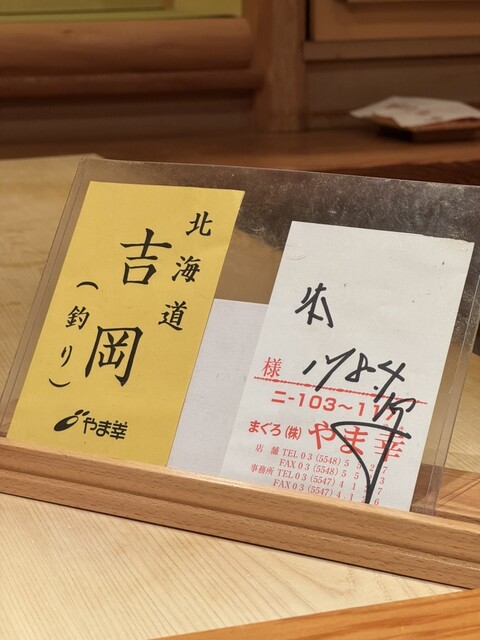 北海道
吉岡
(釣り)
やま幸
178.4
様
ニ-103~11
まぐろ(株)やま幸
店舗 TEL 03 (5548) 5 5 2 7
FAX 03 (5548) 5 5
事務所 TEL 03 (5547) 4 1
FAX 03 (5547) 4 1